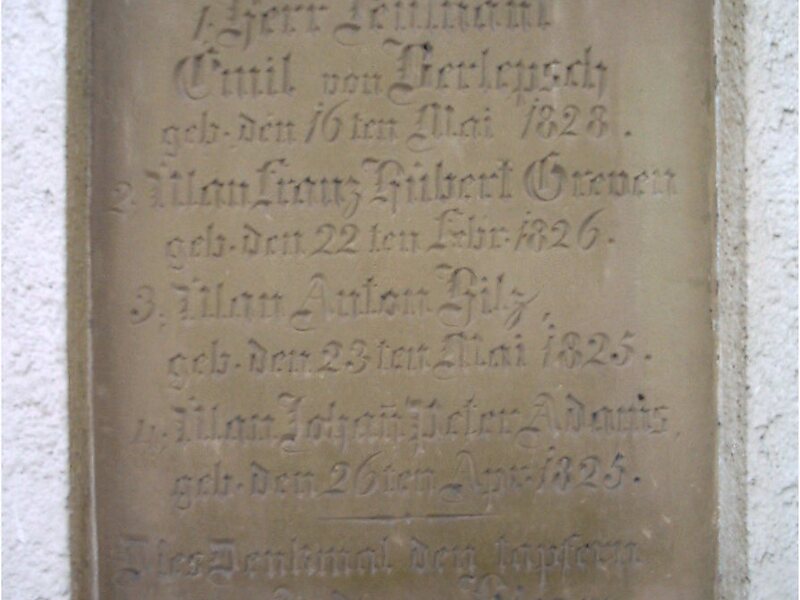 1. Herr Leutnant
Emil von Berlepsch
geb. den 16ten Mai 1828.
2. Ulan Franz Hubert Greven
geb. den 22ten Febr. 1826.
3. Ulan Anton Hilz,
geb. den 23ten Mai 1825.
4. Ulan Johann Peter Adams,
geb. den 26ten Apr. 1825.
Dies Denkmal den tapfern